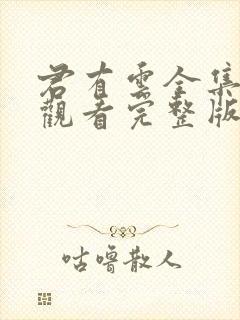 君有雲全集
觀看完整版
咕嚕散人